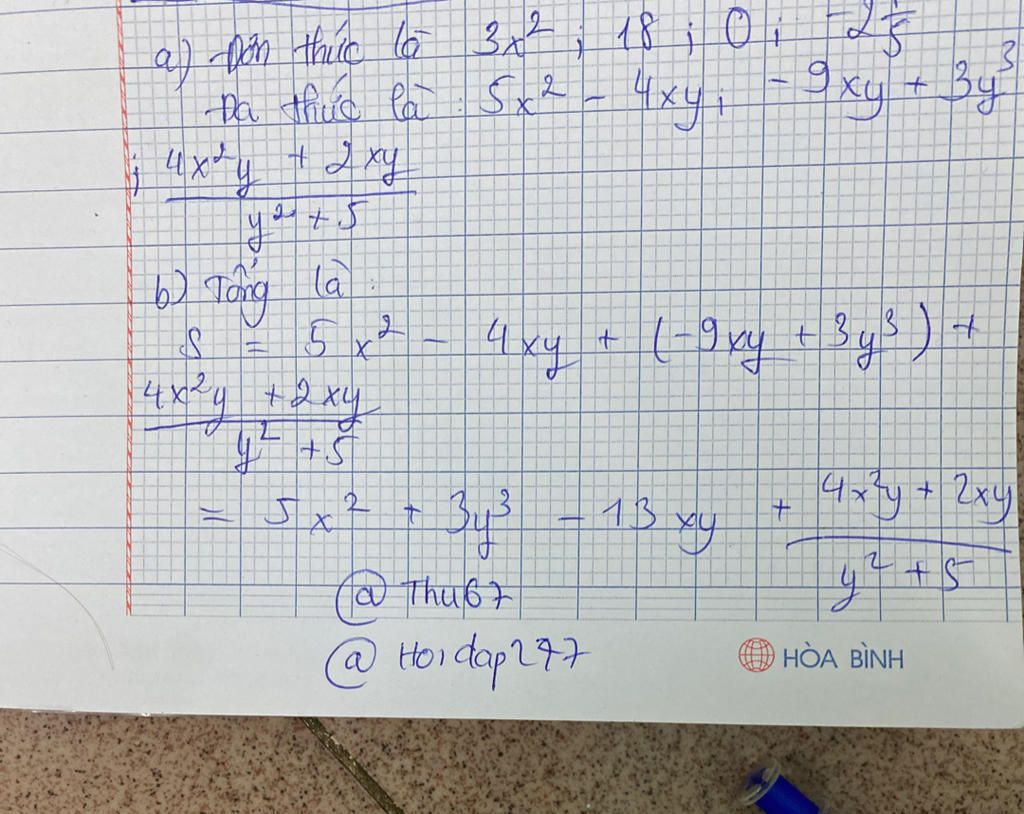 a) Đơn thức là 3x² ; 18 ; 0 ; -2 1/5
Đa thức là : 5x² - 4xy ; -9xy + 3y³
; (4x²y + 2xy)/(y² + 5)
b) Tổng là :
S = 5x² - 4xy + (-9xy + 3y³) +
(4x²y + 2xy)/(y² + 5)
= 5x² + 3y³ - 13xy + (4x²y + 2xy)/(y² + 5)
@ Thu67
@ Hoidap247
HÒA BÌNH